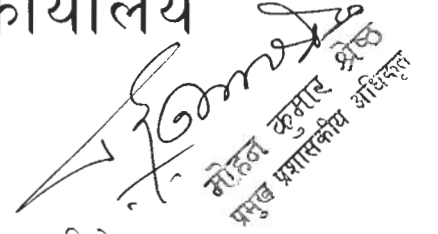 कार्यालय
मोहन कुमार श्रेष्ठ
प्रमुख प्रशासकीय अधिकृत